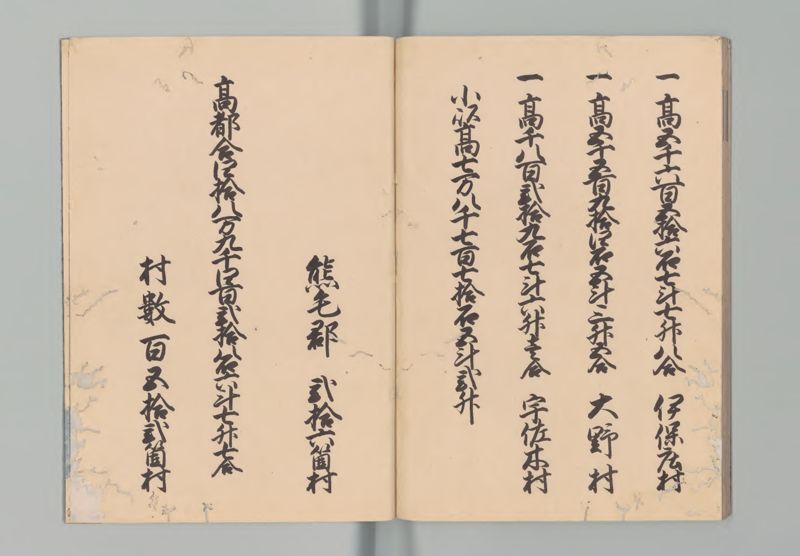 一高五千六百五拾六石七斗七升八合 伊保庄村
一高五千五百九拾四石五斗三升五合 大野村
一高千八百弐拾九石七斗六升壱合 宇佐木村
小以高七万八千七百七拾石五斗弐升
熊毛郡 弐拾六箇村
高都合四拾八万九千四百弐拾八石六斗七升七合
村数百五拾弐箇村